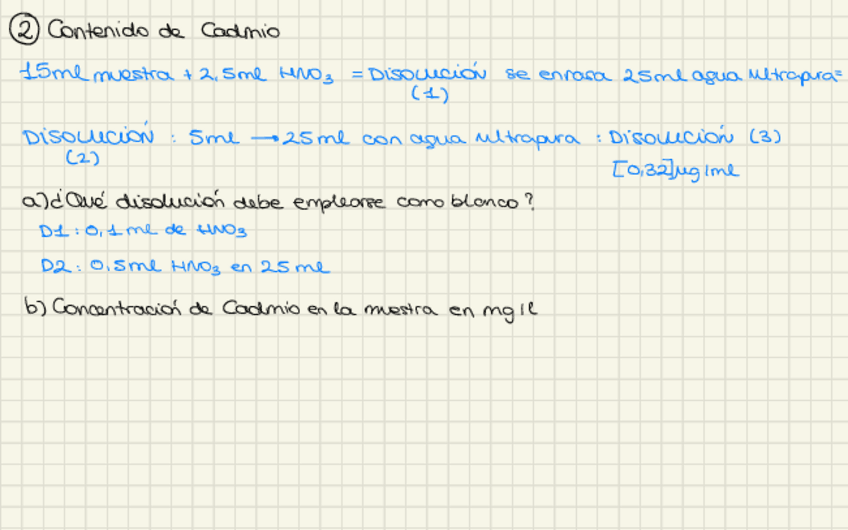 ② Contenido de Cadmio
15ml muestra + 2,5ml HNO3 = Disolución se enrasa 25ml agua ultrapura=
(1)
Disolución : 5ml → 25ml con agua ultrapura : Disolución (3)
(2)
[0,32]µg/ml
a)¿Qué disolución debe emplearse como blanco?
D1: 0,1ml de HNO3
D2: 0.5ml HNO3 en 25ml
b) Concentración de Cadmio en la muestra en mg/l